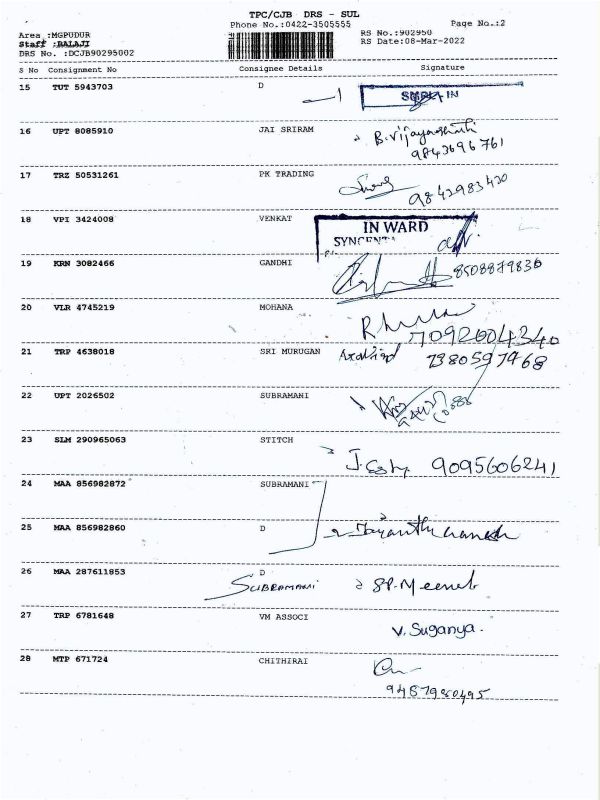 TPC/CJB DRS - SUL
Phone No.:0422-3505555 Page No.:2
Area :MGPUDUR RS No.:902950
Staff :BALAJI RS Date:08-Mar-2022
DRS No. :DCJB90295002
S No Consignment No Consignee Details Signature
15 TUT 5943703 D
16 UPT 8085910 JAI SRIRAM
9843696761
17 TRZ 50531261 PK TRADING
9842983420
18 VPI 3424008 VENKAT IN WARD
19 KRN 3082466 GANDHI 8508879836
20 VLR 4745219 MOHANA
7092604340
21 TRP 4638018 SRI MURUGAN
7380597968
22 UPT 2026502 SUBRAMANI
23 SLM 290965063 STITCH
9095606241
24 MAA 856982872 SUBRAMANI
25 MAA 856982860 D
26 MAA 287611853 D
SUBRAMANI SP. Meena
27 TRP 6781648 VM ASSOCI
V. Suganya.
28 MTP 671724 CHITHIRAI
9487980495